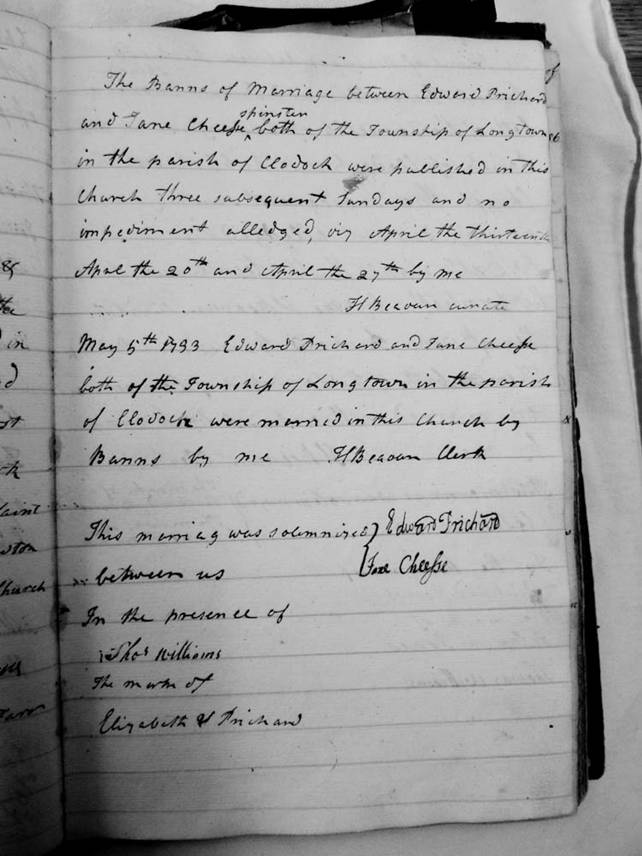 The Banns of Marriage between Edward Prichard
spinster
and Jane Cheese both of the Township of Longtown
in the parish of Clodock were published in this
Church three subsequent Sundays and no
impediment alledged, viz April the thirteenth
April the 20th and April the 27th by me
H Beavan curate
May 5th 1793 Edward Prichard and Jane Cheese
both of the Township of Longtown in the parish
of Clodock were married in this Church by
Banns by me H Beavan Clerk
This marriag was solemnized } Edward Prichard
between us { Jane Cheese
In the presence of
Thos Williams
The mark of
Elizabeth Prichard